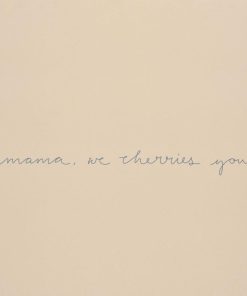 mama, we cherries you